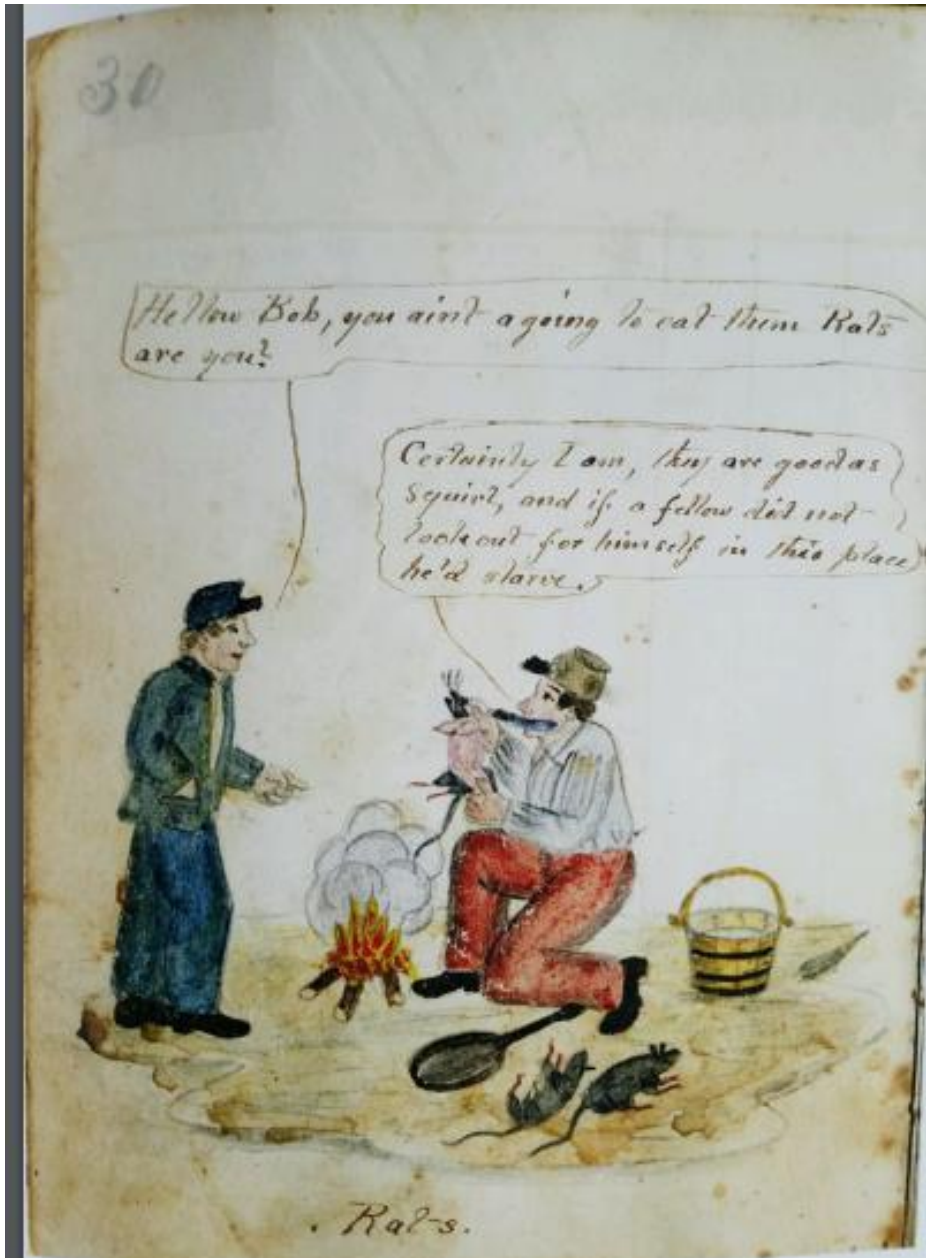 30
Hellow Bob, you aint a going to eat them Rats
are you?
Certainly I am, they are good as
Squirl, and if a fellow did not
look out for himself in this place
he'd starve.
Rats.